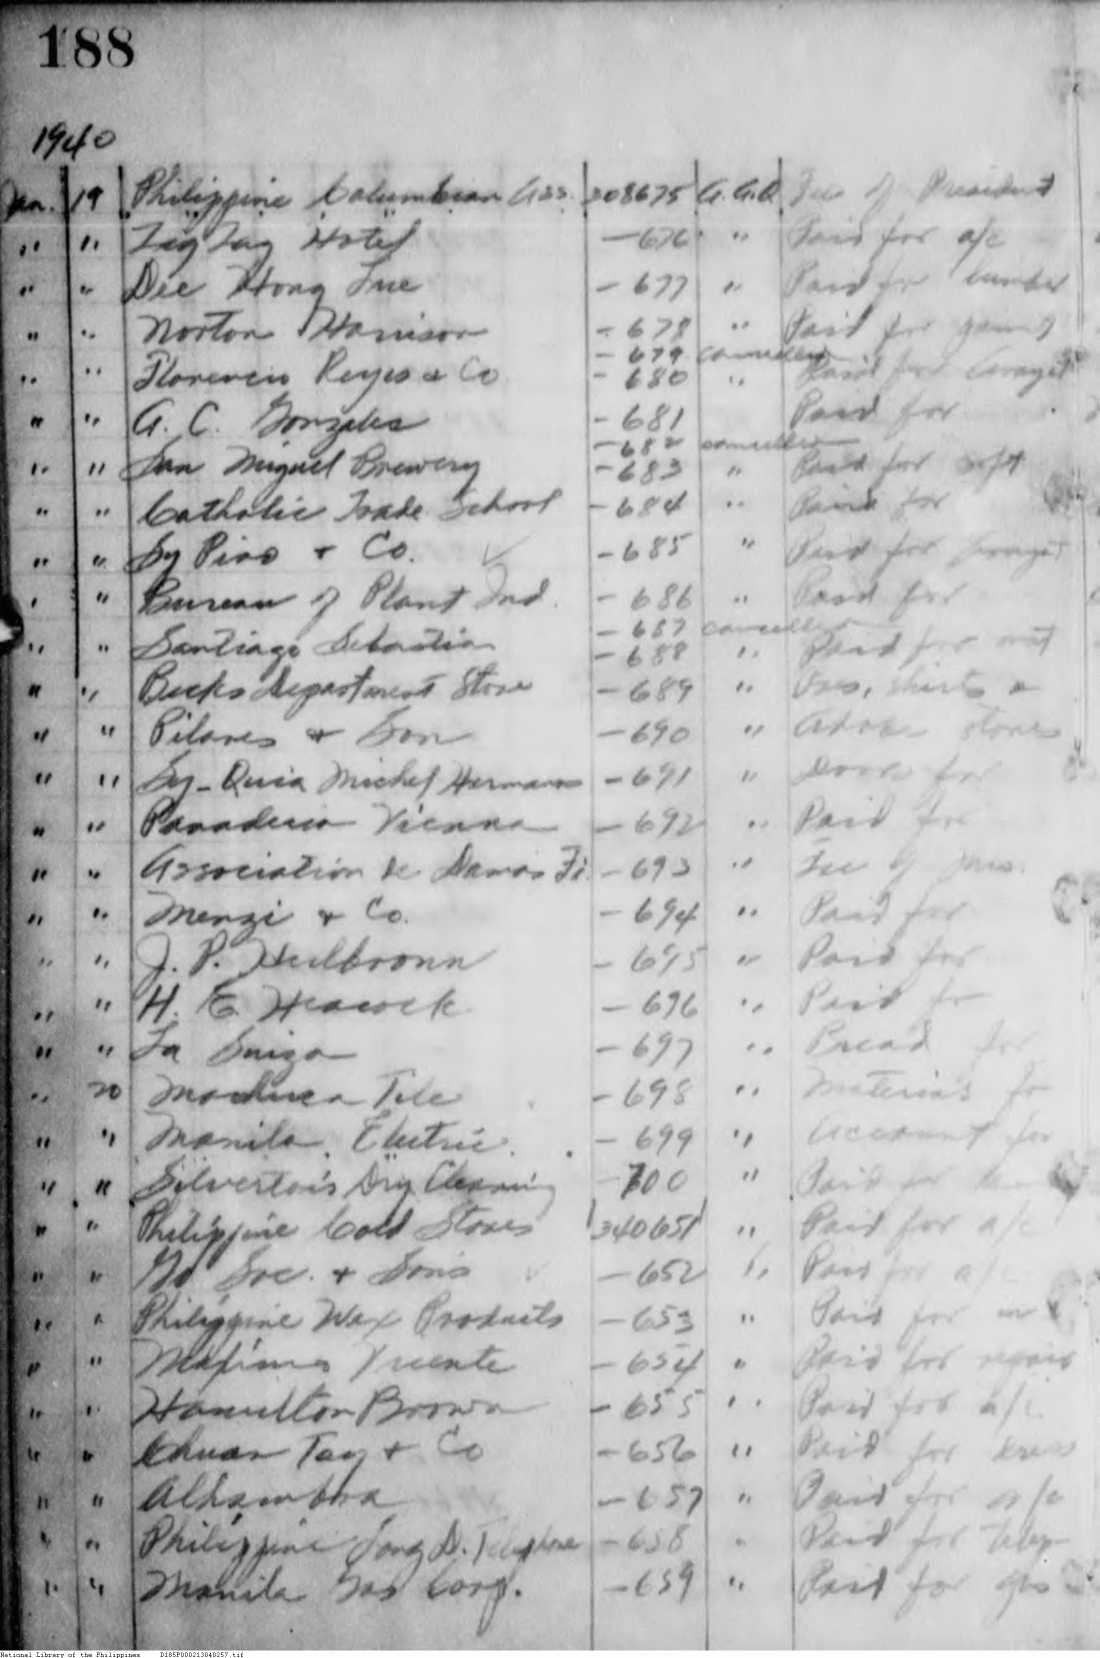 188
1940
Jan. 19 Philippine Columbian Ass. 308675 A.G.A Fee of President
" " Zig Zag Hotel -676 " Paid for a/c
" " Dee Hong Lue -677 " Paid for lumber
" " Norton Harrison -678 " Paid for
-679 cancelled
" " Florencio Reyes & Co -680 " Paid for
" " A. C. Gonzales -681 Paid for
-682 cancelled
" " San Miguel Brewery -683 " Paid for soft
" " Catholic Trade School -684 " Paid for
" " Sy Pino & Co. -685 " Paid for
" " Bureau of Plant Ind. -686 " Paid for
-687 cancelled
" " Santiago Sebastian -688 " Paid for
" " Becks Department Store -689 " shirts
" " Pilares & Son -690 "
" " Sy-Quia Michel Hermanos -691 " Door for
" " Panaderia Vienna -692 " Paid for
" " Association de Damas Fi. -693 " Fee of Mrs.
" " Menzi & Co. -694 " Paid for
" " J. P. Heilbronn -695 " Paid for
" " H. E. Heacock -696 " Paid for
" " La Suiza -697 " Bread for
" 20 Machuca Tile -698 " Materials for
" " Manila Electric. -699 " Account for
" " Silverto's Dry Cleaning -700 " Paid for
" " Philippine Cold Stores 340651 " Paid for a/c
" " Go Soc. & Sons -652 " Paid for a/c
" " Philippine Wax Products -653 " Paid for
" " Maximo Vicente -654 " Paid for repair
" " Hamilton Brown -655 " Paid for a/c
" " Chuan Tay & Co -656 " Paid for
" " Alhambra -657 " Paid for a/c
" " Philippine Long D. Telephone -658 " Paid for telep-
" " Manila Gas Corp. -659 " Paid for gas
National Library of the Philippines D185P000213040257.tif